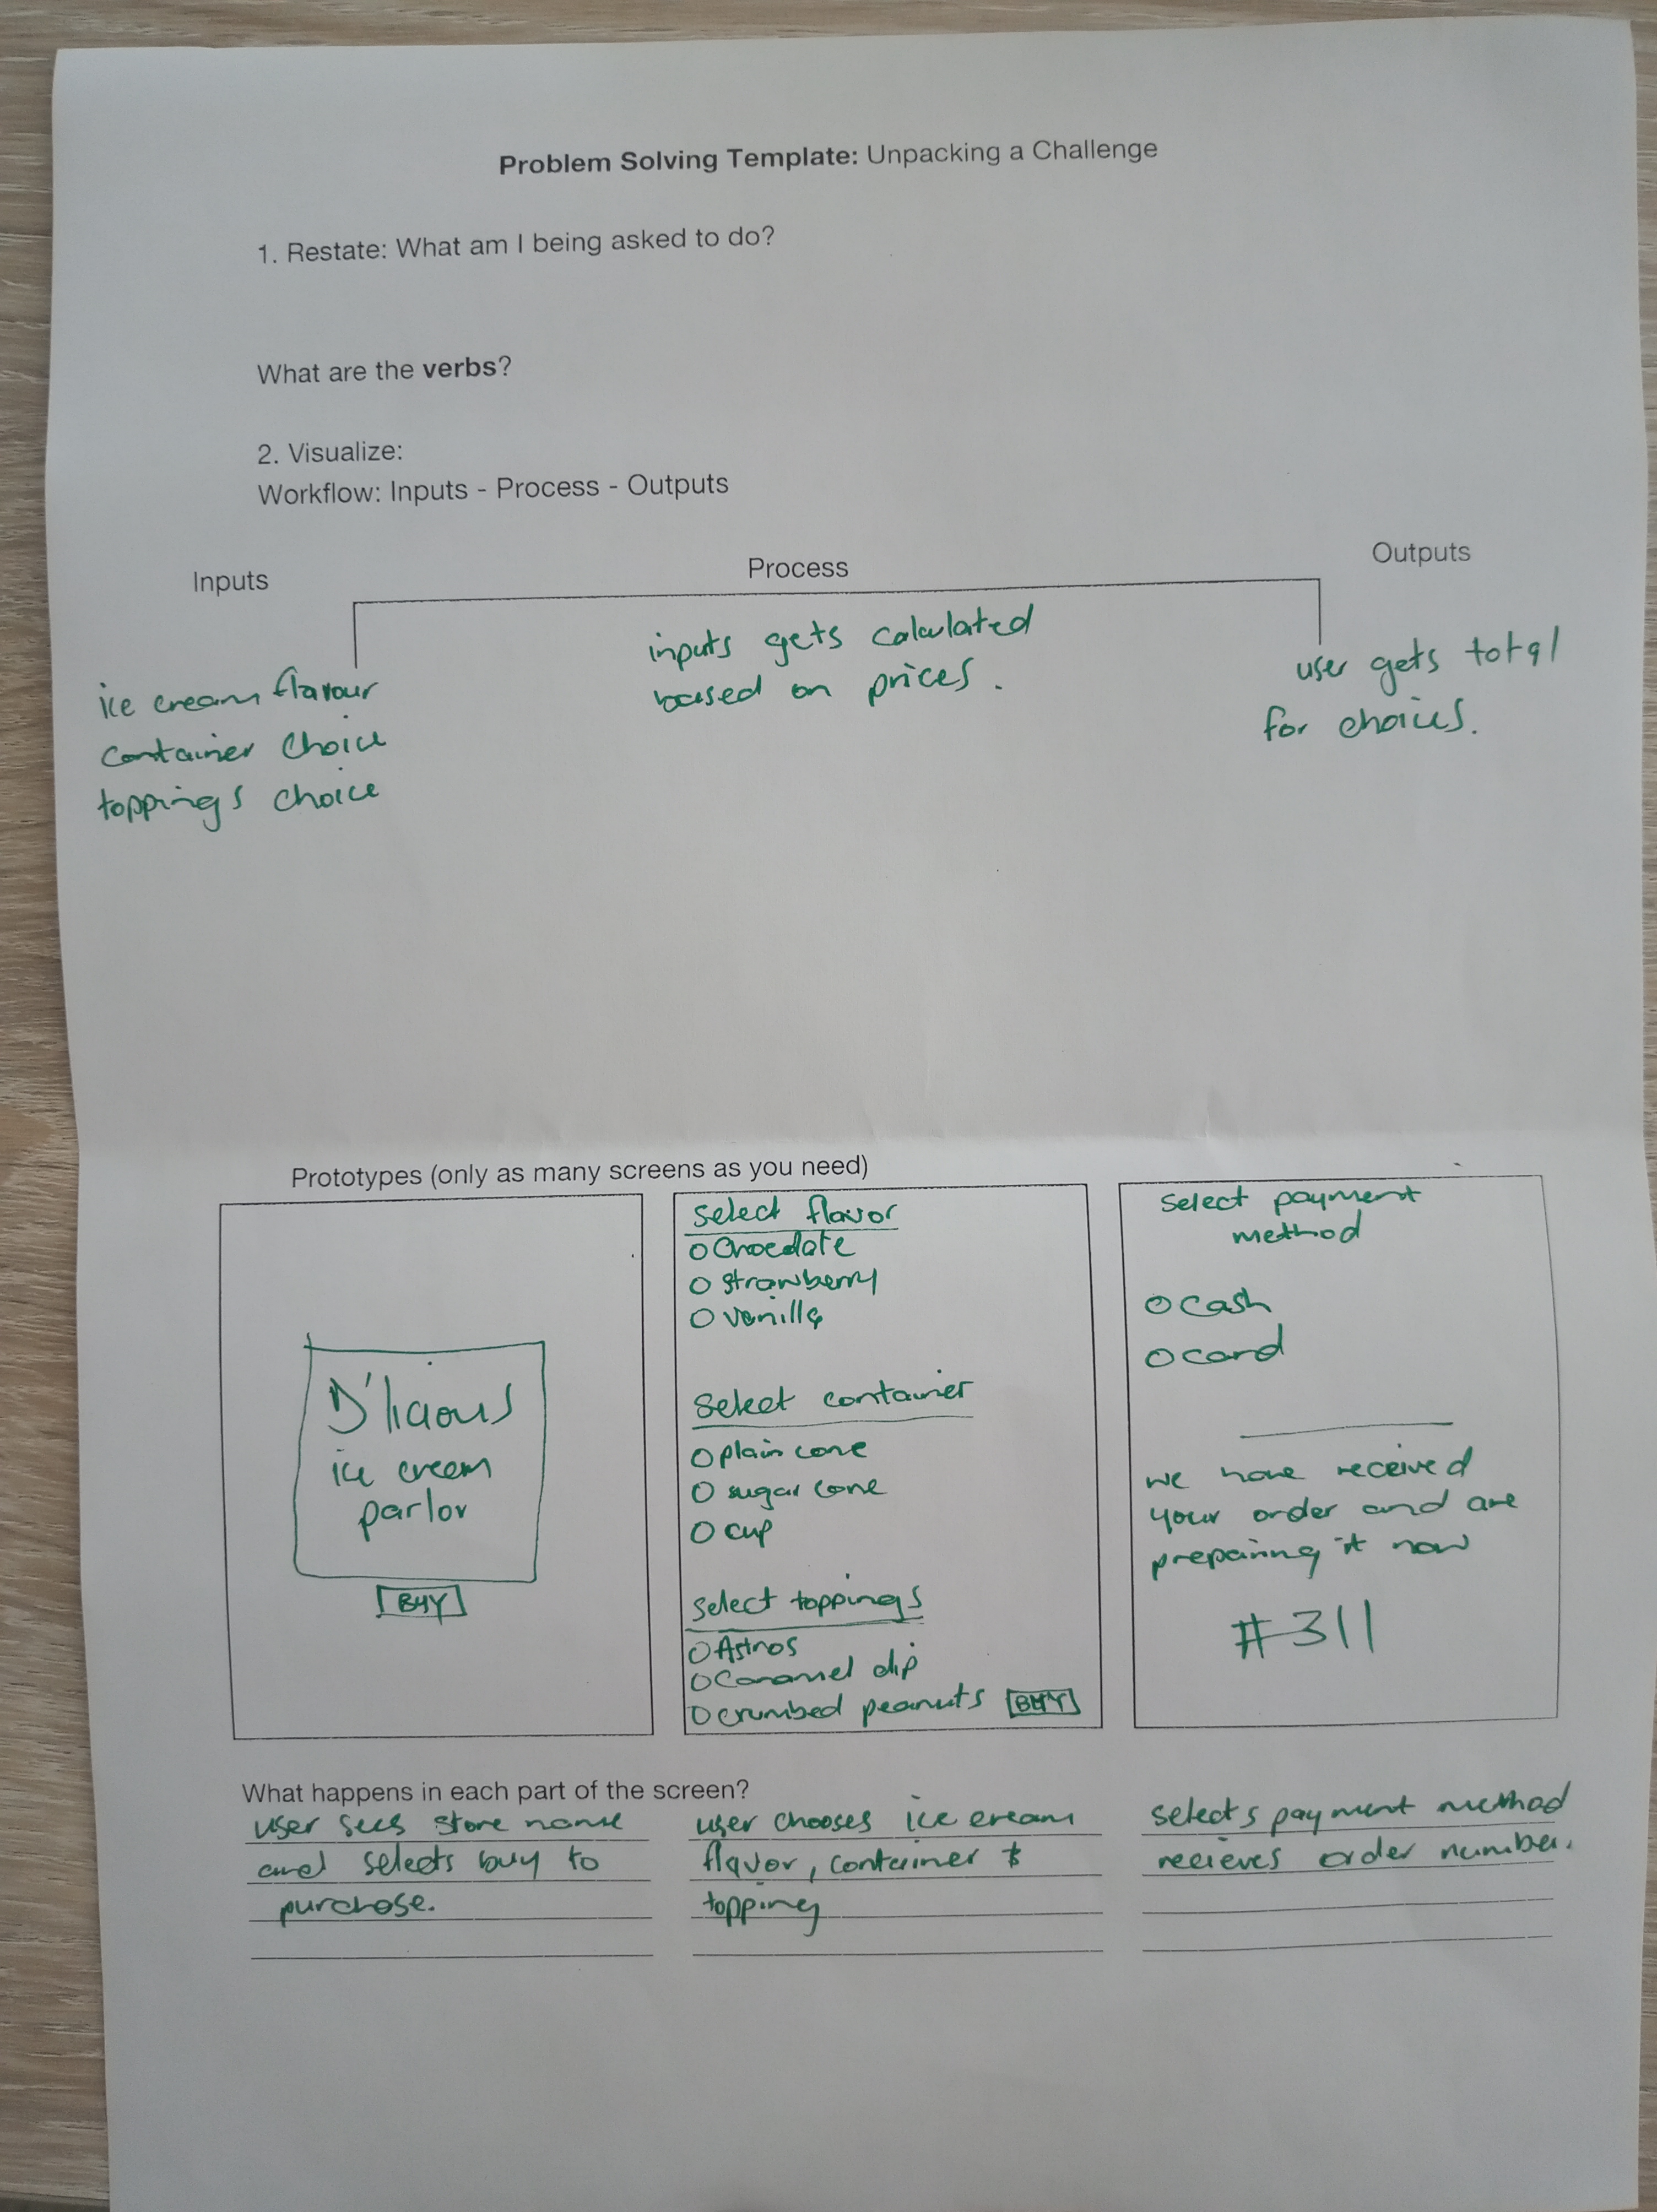 Problem Solving Template: Unpacking a Challenge
1. Restate: What am I being asked to do?
What are the verbs?
2. Visualize:
Workflow: Inputs - Process - Outputs
Inputs
Process
Outputs
ice cream flavour
container choice
toppings choice
inputs gets calculated
based on prices.
user gets total
for choices.
Prototypes (only as many screens as you need)
D'licious
ice cream
parlor
BUY
select flavor
O Chocolate
O strawberry
O vanilla
Select container
O plain cone
O sugar cone
O cup
select toppings
O Astros
O Caramel dip
O crumbed peanuts BUY
select payment
method
O cash
O card
we have received
your order and are
preparing it now
#311
What happens in each part of the screen?
user sees store name
and selects buy to
purchase.
user chooses ice cream
flavor, container &
topping
selects payment method
recieves order number.